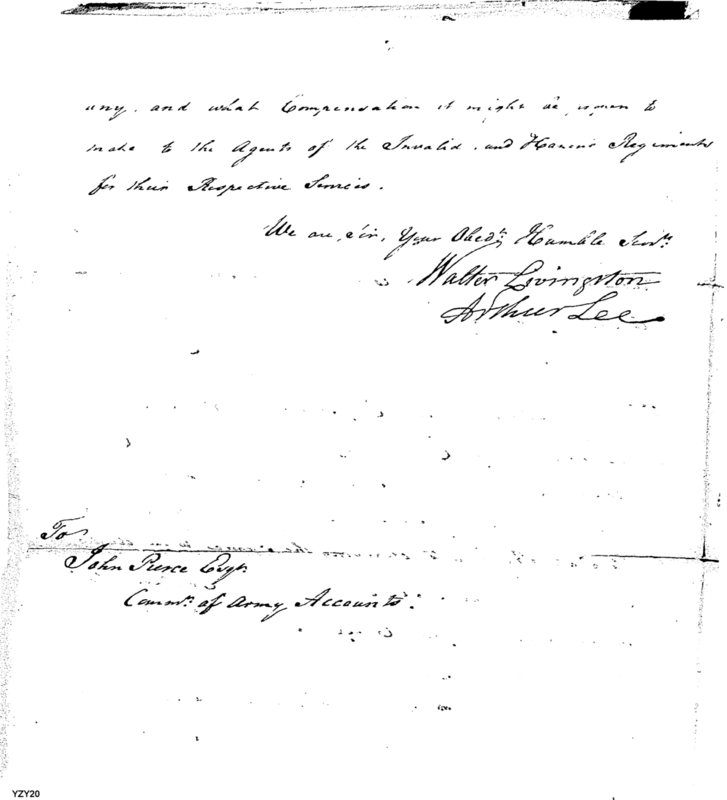 any, and what Compensation it might be to
make to the Agents of the Invalid, and Hazen's Regiments
for their Respective Services.
We are, Sir, Your Obedt. Humble Servts.
Walter Livingston
Arthur Lee
To
John Pierce Esqr.
Commr. of Army Accounts.
YZY20